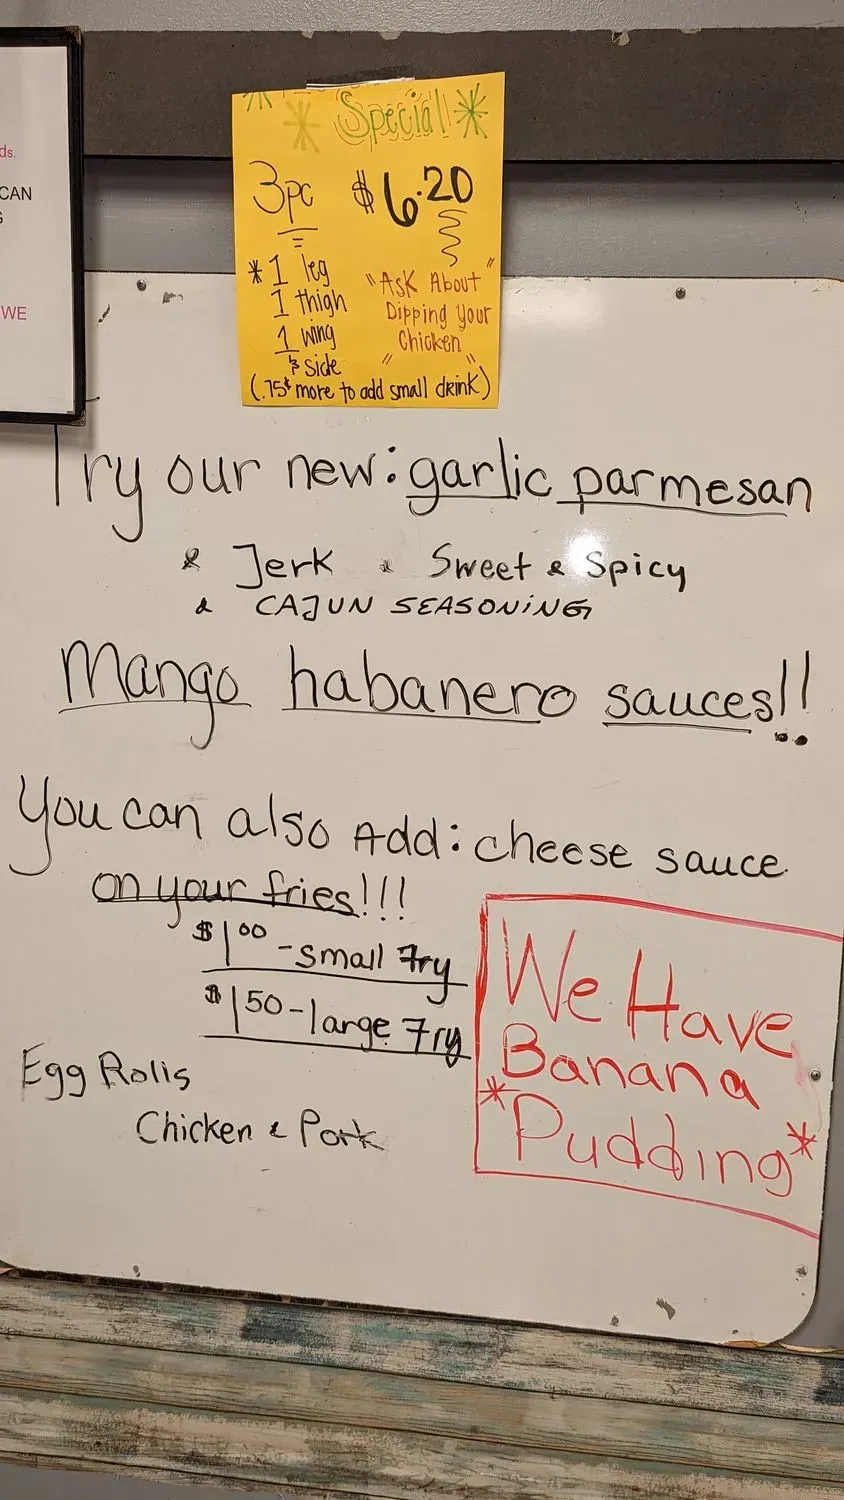 ds.
CAN
WE
* Special *
3pc $6.20
* 1 leg
1 thigh
1 wing
& side
"Ask About
Dipping Your
Chicken"
(.75¢ more to add small drink)
Try our new: garlic parmesan
& Jerk * Sweet & Spicy
& CAJUN SEASONING
Mango habanero sauces!!
You can also Add: cheese sauce
on your fries!!!
$1.00 - small Fry
$1.50 - large Fry
Egg Rolls
Chicken & Pork
We Have
Banana
*Pudding*